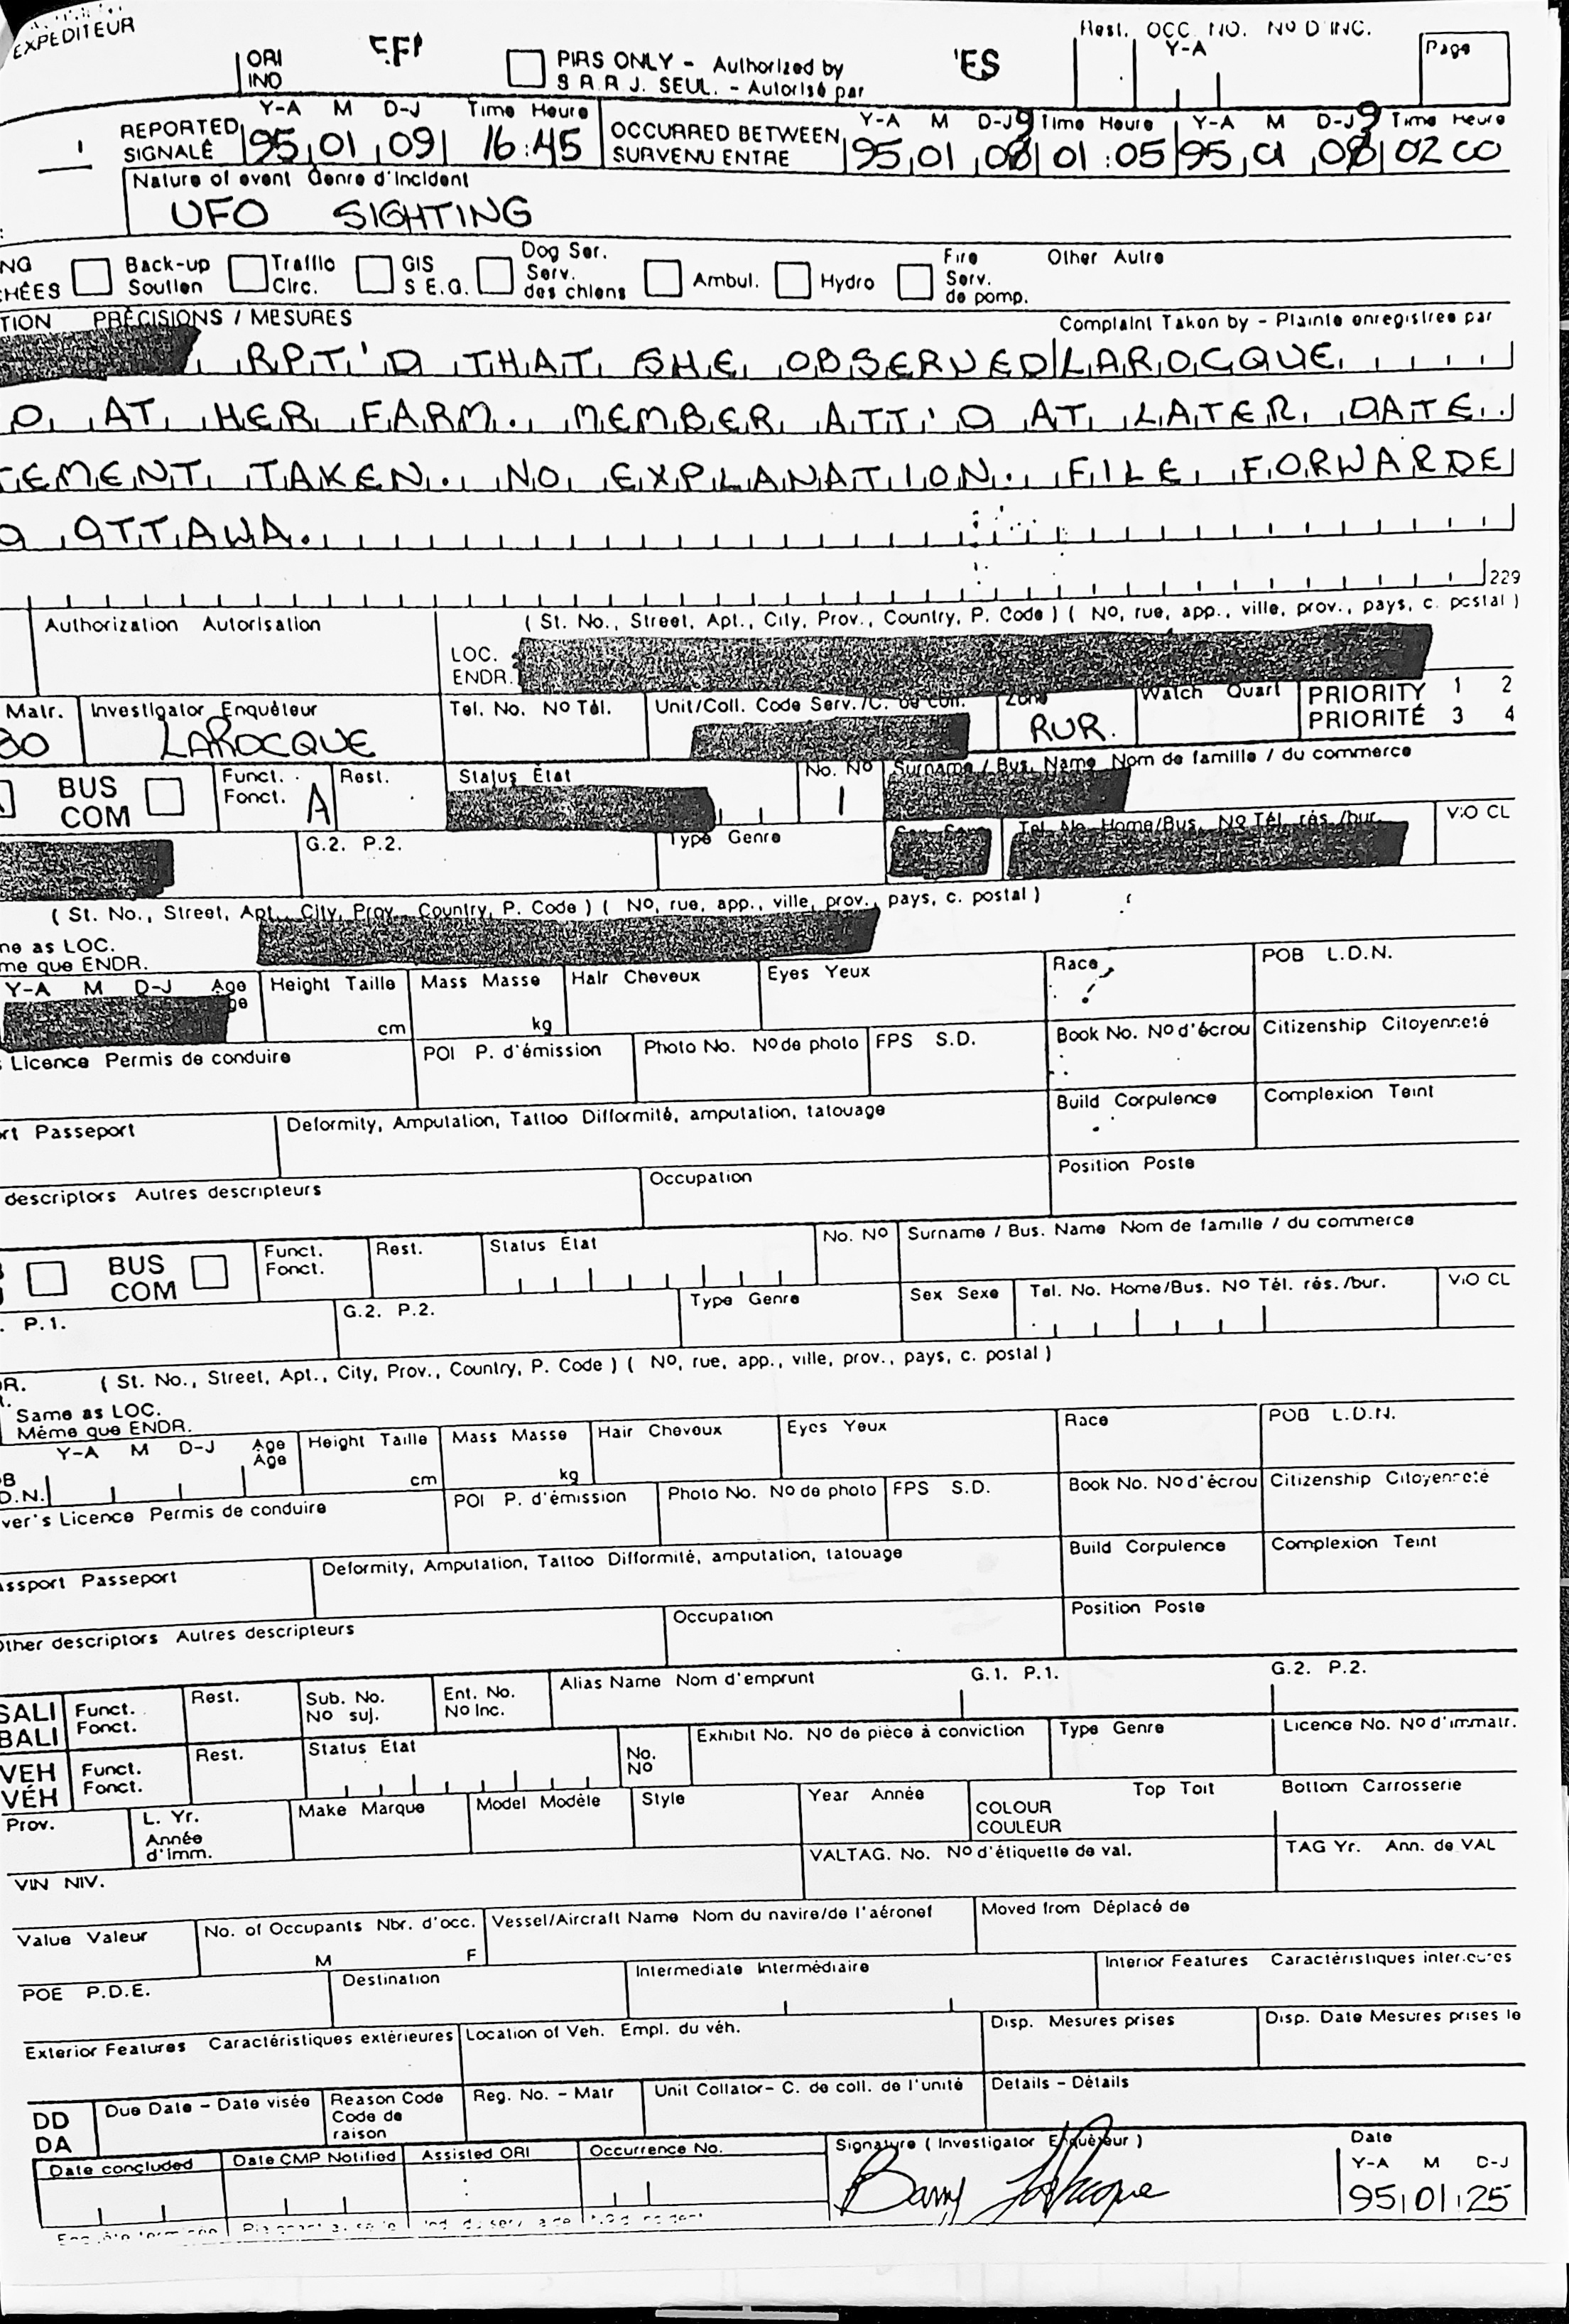 EXPÉDITEUR
Rest. OCC. NO. Nº D'INC.
ORI
INO
PIRS ONLY - Authorized by
S.R.R.J. SEUL. - Autorisé par
'ES
Y-A
Page
REPORTED
SIGNALÉ
Y-A M D-J Time Heure
95 01 09 16:45
OCCURRED BETWEEN
SURVENU ENTRE
Y-A M D-J Time Heure Y-A M D-J Time Heure
95 01 09 01:05 95 01 09 02 00
Nature of event Genre d'incident
UFO SIGHTING
NG
HÉES
Back-up
Soutien
Traffic
Circ.
GIS
S.E.G.
Dog Ser.
Serv.
des chiens
Ambul.
Hydro
Fire
Serv.
de pomp.
Other Autre
TION PRÉCISIONS / MESURES
Complaint Taken by - Plainte enregistrée par
RPT'D THAT SHE OBSERVED LAROCQUE
O AT HER FARM. MEMBER ATT'D AT LATER DATE.
TEMENT TAKEN. NO EXPLANATION. FILE FORWARDE
O OTTAWA.
229
Authorization Autorisation
(St. No., Street, Apt., City, Prov., Country, P. Code) (No, rue, app., ville, prov., pays, c. postal)
LOC.
ENDR.
Matr.
80
Investigator Enquêteur
LAROCQUE
Tel. No. Nº Tél.
Unit/Coll. Code Serv./C. de coll.
Zone
RUR.
Watch Quart
PRIORITY 1 2
PRIORITÉ 3 4
BUS
COM
Funct.
Fonct.
A
Rest.
Status État
No. Nº
1
Surname / Bus. Name Nom de famille / du commerce
G.2. P.2.
Type Genre
Tel. No. Home/Bus. Nº Tél. rés./bur.
VIO CL
(St. No., Street, Apt., City, Prov., Country, P. Code) (No, rue, app., ville, prov., pays, c. postal)
me as LOC.
me que ENDR.
Y-A M D-J Age
Height Taille
cm
Mass Masse
kg
Hair Cheveux
Eyes Yeux
Race
POB L.D.N.
Licence Permis de conduire
POI P. d'émission
Photo No. Nº de photo
FPS S.D.
Book No. Nº d'écrou
Citizenship Citoyenneté
rt Passeport
Deformity, Amputation, Tattoo Difformité, amputation, tatouage
Build Corpulence
Complexion Teint
descriptors Autres descripteurs
Occupation
Position Poste
BUS
COM
Funct.
Fonct.
Rest.
Status État
No. Nº
Surname / Bus. Name Nom de famille / du commerce
P.1.
G.2. P.2.
Type Genre
Sex Sexe
Tel. No. Home/Bus. Nº Tél. rés./bur.
VIO CL
R. (St. No., Street, Apt., City, Prov., Country, P. Code) (No, rue, app., ville, prov., pays, c. postal)
Same as LOC.
Même que ENDR.
Y-A M D-J Age
Âge
B
D.N.
Height Taille
cm
Mass Masse
kg
Hair Cheveux
Eyes Yeux
Race
POB L.D.N.
ver's Licence Permis de conduire
POI P. d'émission
Photo No. Nº de photo
FPS S.D.
Book No. Nº d'écrou
Citizenship Citoyenneté
assport Passeport
Deformity, Amputation, Tattoo Difformité, amputation, tatouage
Build Corpulence
Complexion Teint
Other descriptors Autres descripteurs
Occupation
Position Poste
SALI
BALI
Funct.
Fonct.
Rest.
Sub. No.
No suj.
Ent. No.
No Inc.
Alias Name Nom d'emprunt
G.1. P.1.
G.2. P.2.
VEH
VÉH
Funct.
Fonct.
Rest.
Status État
No.
Nº
Exhibit No. Nº de pièce à conviction
Type Genre
Licence No. Nº d'immatr.
Prov.
L. Yr.
Année
d'imm.
Make Marque
Model Modèle
Style
Year Année
COLOUR
COULEUR
Top Toit
Bottom Carrosserie
VIN NIV.
VALTAG. No. Nº d'étiquette de val.
TAG Yr. Ann. de VAL
Value Valeur
No. of Occupants Nbr. d'occ.
M F
Vessel/Aircraft Name Nom du navire/de l'aéronef
Moved from Déplacé de
POE P.D.E.
Destination
Intermediate Intermédiaire
Interior Features Caractéristiques intérieures
Exterior Features Caractéristiques extérieures
Location of Veh. Empl. du véh.
Disp. Mesures prises
Disp. Date Mesures prises le
DD
DA
Due Date - Date visée
Reason Code
Code de
raison
Reg. No. - Matr
Unit Collator - C. de coll. de l'unité
Details - Détails
Date concluded
Date CMP Notified
Assisted ORI
Occurrence No.
Signature (Investigator Enquêteur)
Barry LaRocque
Date
Y-A M D-J
95 01 25